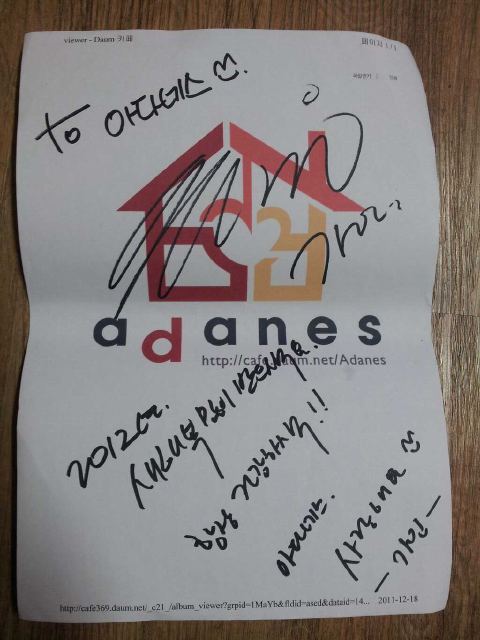 viewer - Daum 카페
페이지 1 / 1
to 아다네스
가인
adanes
http://cafe.daum.net/Adanes
2012년.
새해 복 많이 받으세요.
항상 건강하시구!!
아다네스.
사랑해요
- 가인 -
http://cafe369.daum.net/_c21_/album_viewer?grpid=1MaYb&fldid=ased&dataid=14...
2011-12-18